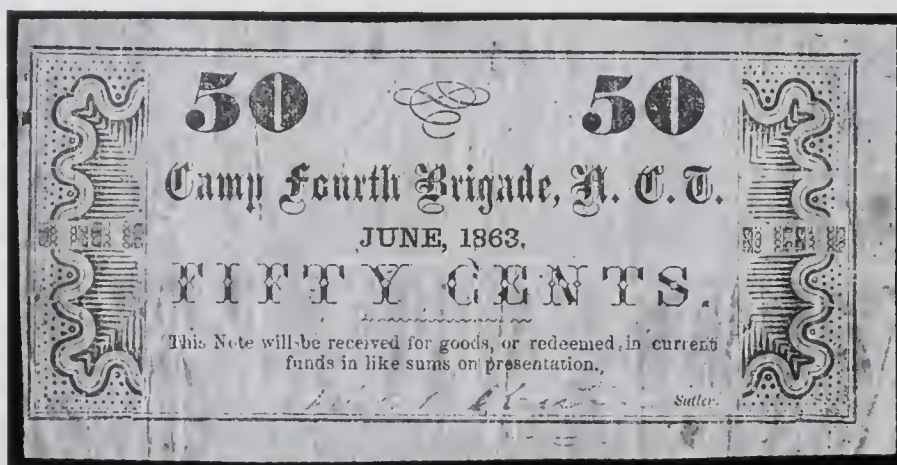 50 50
Camp Fourth Brigade, N. C. T.
JUNE, 1863.
FIFTY CENTS.
This Note will be received for goods, or redeemed, in current
funds in like sums on presentation.
Sutler.